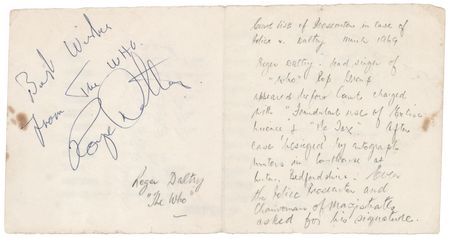 Best Wishes
From The WHO.
Roger Daltrey
Roger Daltry
"The Who"
Court list of Prosecutor in case of
Police v. Daltry March 1969
Roger Daltry: lead singer of
"Who" Pop Group
appeared before Court charged
with "Fraudulent use of
licence" & "No Tax". After
case besieged by autograph
hunters in Courthouse at
Luton. Bedfordshire. Even
the Police Prosecutor and
Chairman of magistrates
asked for his signature.